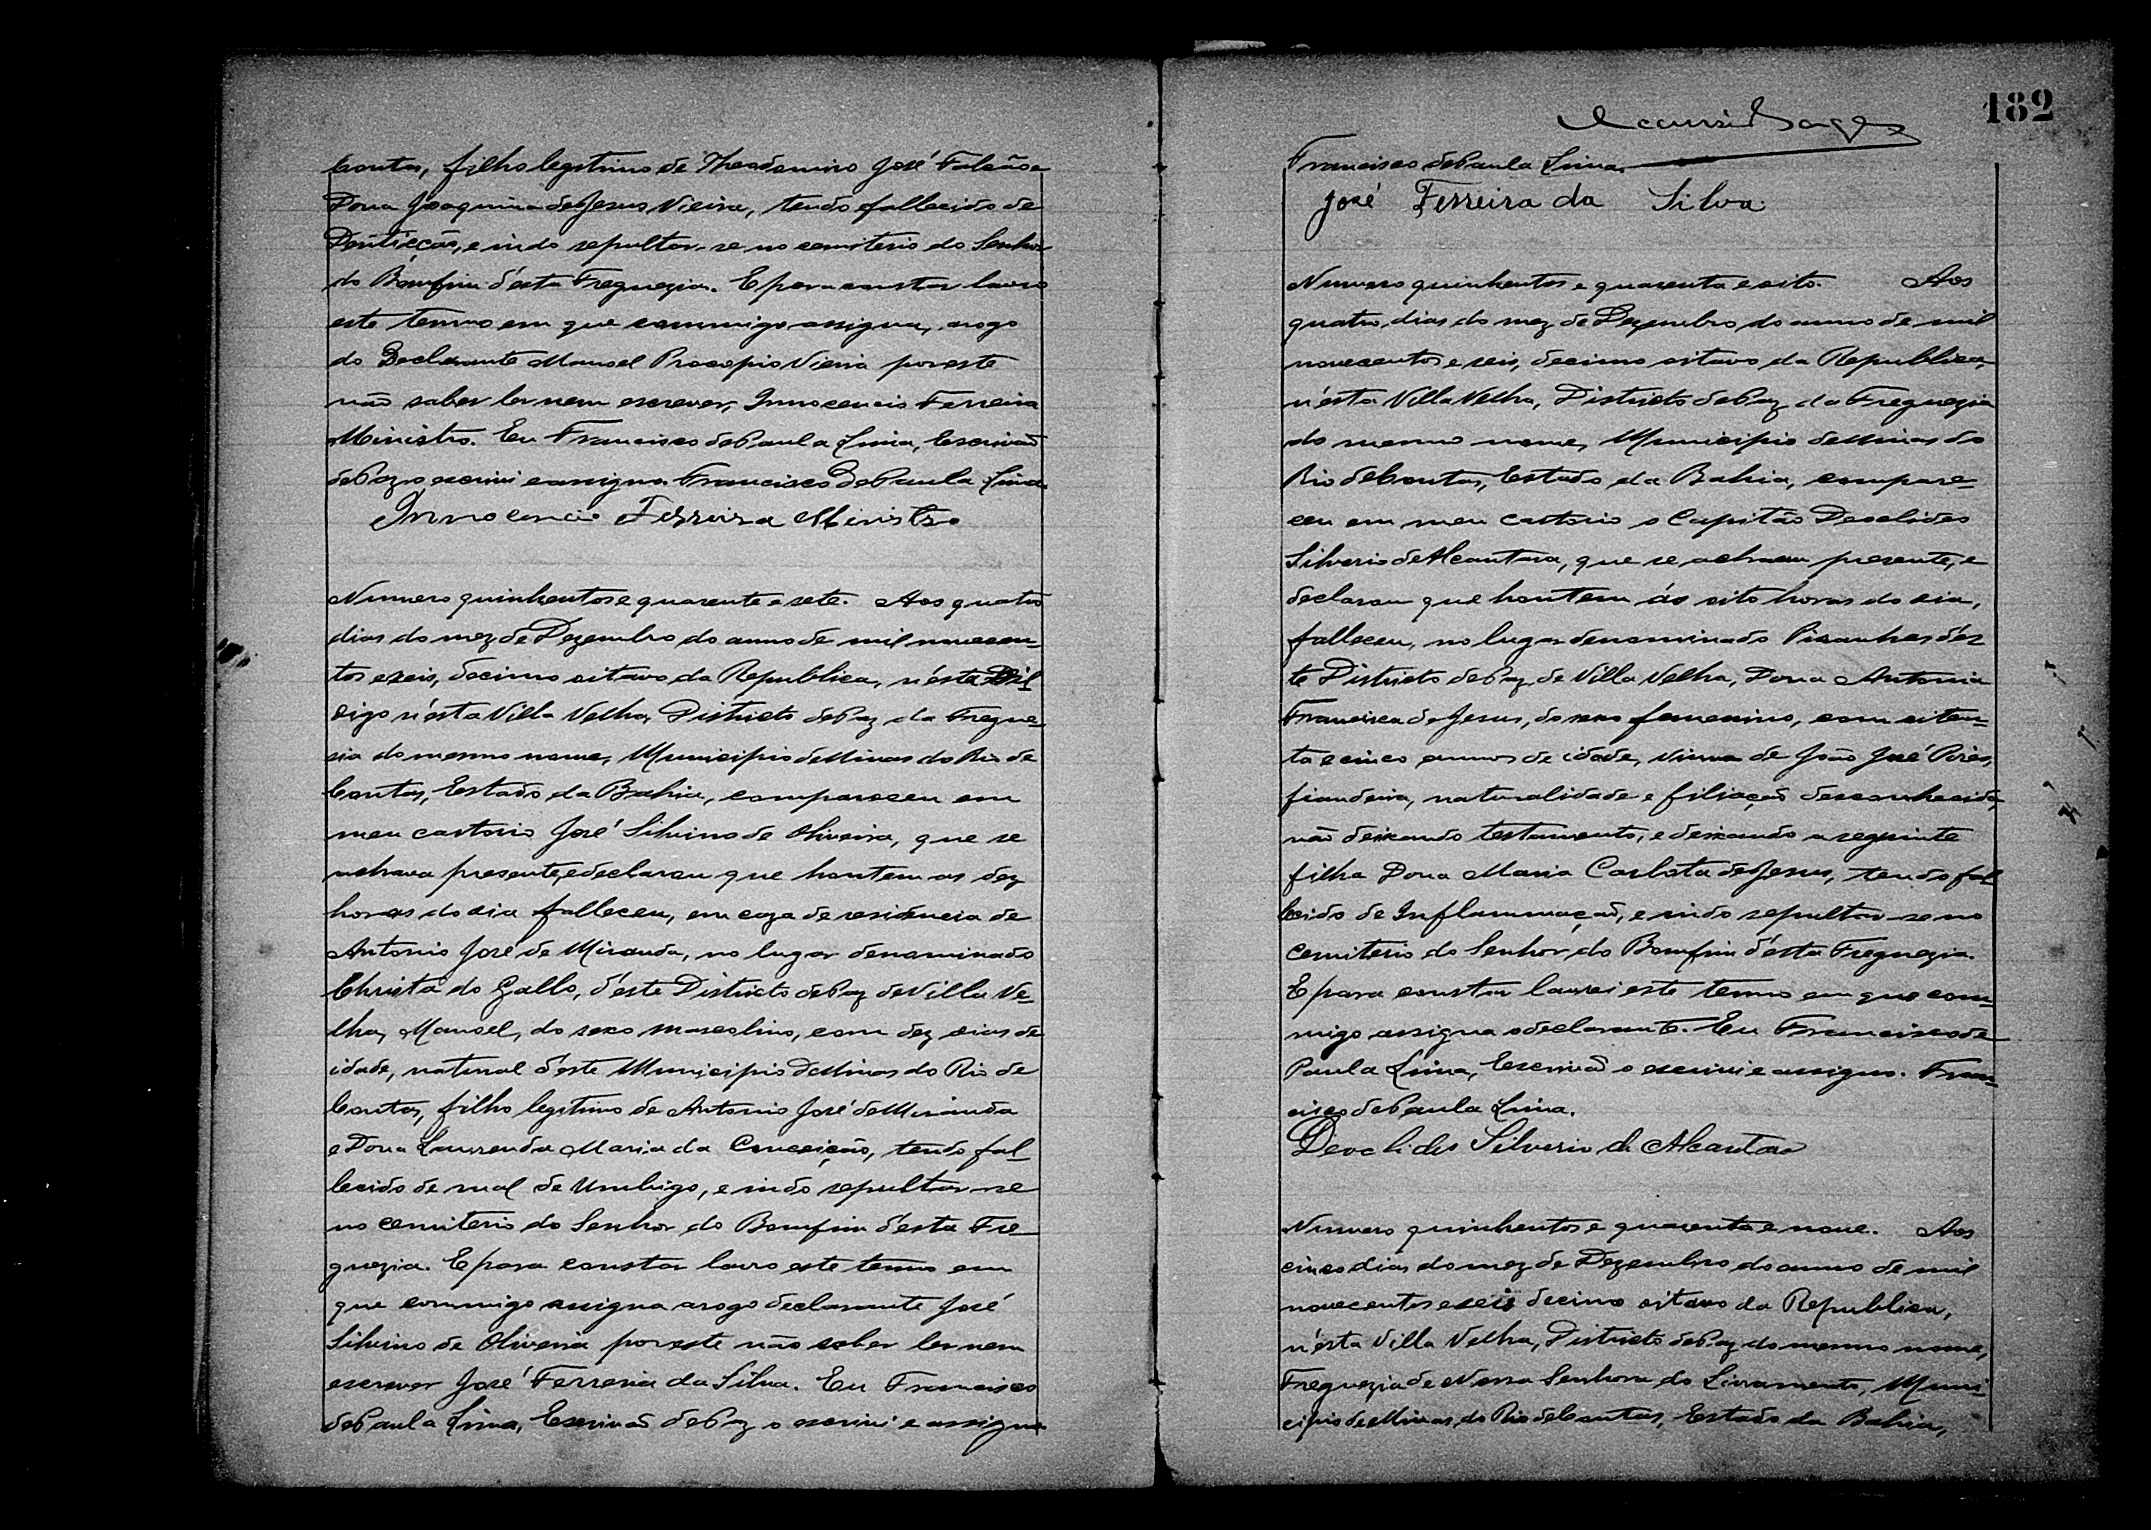 Contas, filho legitimo de Theodomiro José Falcão e
Dona Joaquina de Jesus Vieira, tendo fallecido de
Dentição, e indo sepultar-se no cemiterio do Senhor
do Bomfim d'esta Freguezia. E para constar lavro
este termo em que commigo assigna, arogo
do Declarante Manoel Procopio Vieira por este
não saber ler nem escrever, Innocencio Ferreira
Ministro. Eu Francisco de Paula Lima, Escrivão
de Paz o escrivi e assigno. Francisco De Paula Lima
Innocencio Ferreira Ministro
Numero quinhentos e quarenta e sete. Aos quatro
dias do mez de Dezembro do anno de mil novecen-
tos e seis, decimo oitavo da Republica, n'esta Vil
digo n'esta Villa Velha, Districto de Paz da Fregue-
sia do mesmo nome, Municipio de Minas do Rio de
Contas, Estado da Bahia, compareceu em
meu cartorio José Silvino de Oliveira, que se
achava presente, e declarou que hontem as dez
horas do dia falleceu, em caza de residencia de
Antonio José de Miranda, no lugar denominado
Christa do Gallo, d'este Districto de Paz de Villa Ve-
lha, Manoel, do sexo mascolino, com dez dias de
idade, natural d'este Municipio de Minas do Rio de
Contas, filho legitimo de Antonio José de Miranda
e Dona Laurenda Maria da Conceição, tendo fal-
lecido de mal de Umbigo, e indo sepultar-se
no cemiterio do Senhor do Bomfim d'esta Fre-
guezia. E para constar lavro este termo em
que commigo assigna arogo declarante José
Silvino de Oliveira por este não saber ler nem
escrever José Ferreira da Silva. Eu Francisco
de Paula Lima, Escrivão de Paz o escrivi e assigno
182
Francisco de Paula Lima
José Ferreira da Silva
Numero quinhentos e quarenta e oito. Aos
quatro dias do mez de Dezembro do anno de mil
novecentos e seis, decimo oitavo da Republica,
n'esta Villa Velha, Districto de Paz da Freguezia
do mesmo nome, Municipio de Minas do
Rio de Contas, Estado da Bahia, compare-
ceu em meu cartorio o Capitão Deoclides
Silverio de Alcantara, que se achava presente, e
declarou que hontem ás oito horas do dia,
falleceu, no lugar denominado Piranhas d'es
te Districto de Paz de Villa Velha, Dona Antonia
Francisca de Jesus, do sexo femenino, com oiten-
ta e cinco annos de idade, viuva de João José Pires,
fiandeira, naturalidade e filiação desconhecida,
não deixando testamento, e deixando a seguinte
filha Dona Maria Carlota de Jesus, tendo fal
lecido de Inflammação, e indo sepultar-se no
cemiterio do Senhor do Bomfim d'esta Freguezia.
E para constar lavrei este termo em que com-
migo assigna o declarante. Eu Francisco de
Paula Lima, Escrivão o escrivi e assigno. Fran-
cisco de Paula Lima.
Deoclides Silverio de Alcantara
Numero quinhentos e quarenta e nove. Aos
cinco dias do mez de Dezembro do anno de mil
novecentos e seis decimo oitavo da Republica,
n'esta Villa Velha, Districto de Paz do mesmo nome,
Freguezia de Nossa Senhora do Livramento, Muni-
cipio de Minas do Rio de Contas, Estado da Bahia,